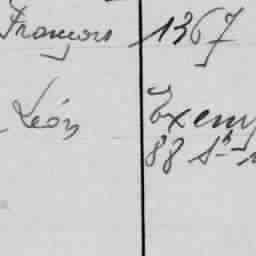 François 1367
Léon Exemp
88 S